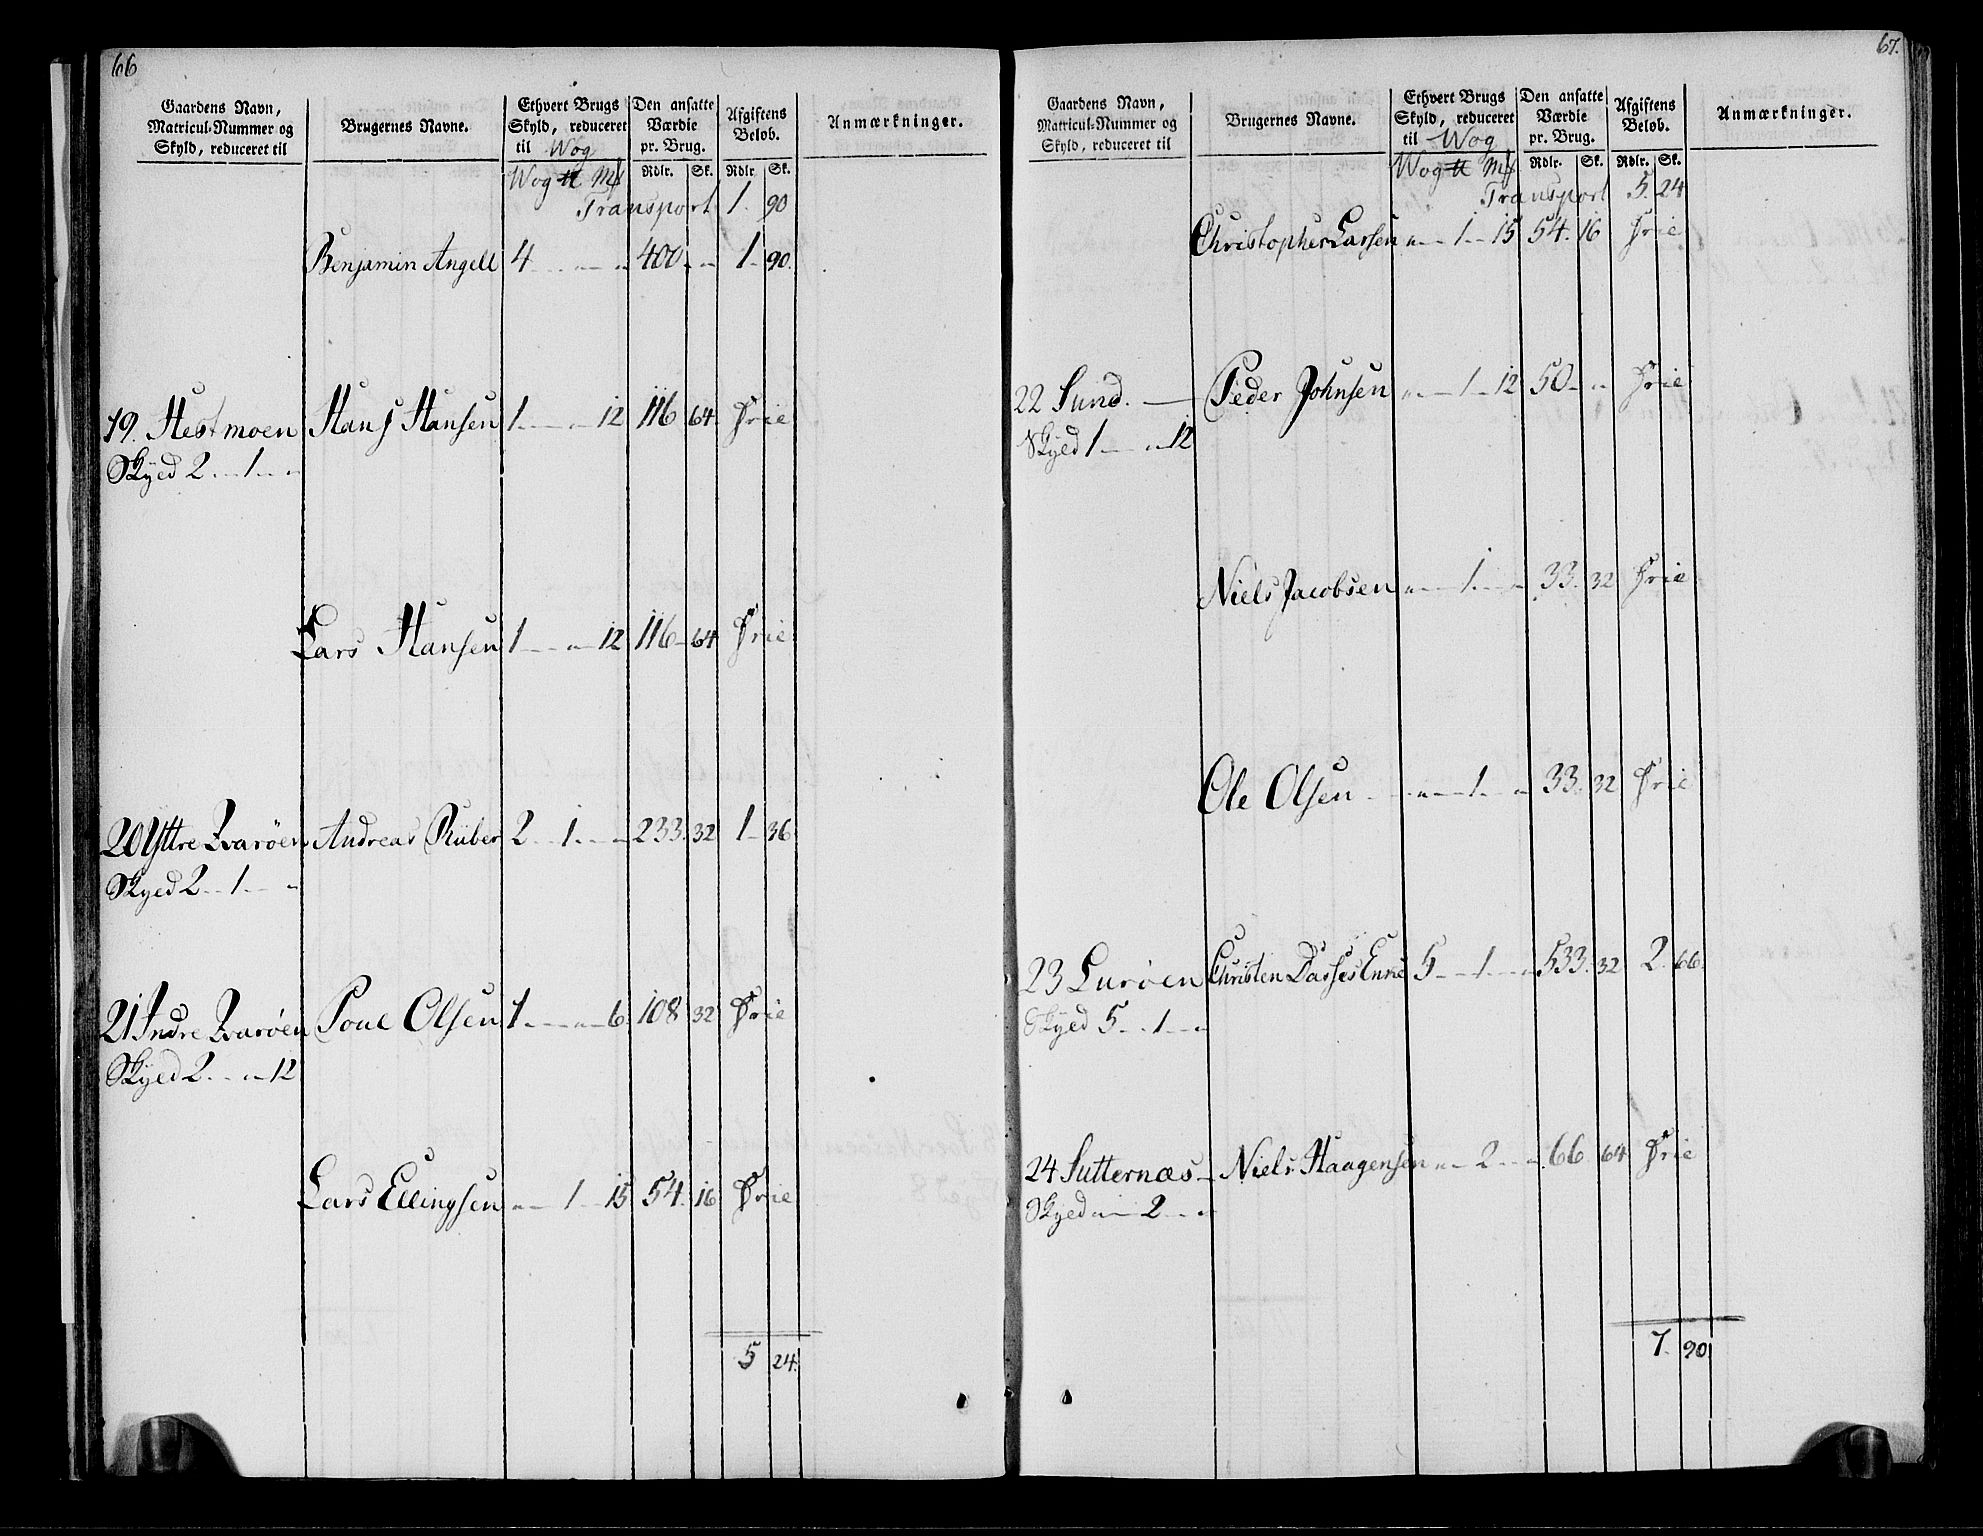 66
Gaardens Navn, Matricul-Nummer og Skyld, reduceret til
Brugernes Navne.
Ethvert Brugs Skyld, reduceret til Wog
Den ansatte Værdie pr. Brug.
Afgiftens Beløb.
Anmærkninger.
Wog ℔ Mk Rdlr. Sk. Rdlr. Sk.
Transport 1. 90
Benjamin Angell 4 - - " - " 400 - " 1 - 90.
19. Hestmoen Hans Hansen 1 - - " - 12 116 64 Frie
Skyed 2 - 1 - "
Lars Hansen 1 - - " - 12 116 - 64 Frie
20 Yttre Qvarøen Andreas Riiber 2 - 1 - - " 233. 32 1 - 36
Skyed 2 - 1 - "
21 Indre Qvarøen Poul Olsen 1 - - " - 6 108 32 Frie
Skyed 2 - " - 12
Lars Ellingsen " - 1 - 15 54. 16 Frie
5 24.
67.
Gaardens Navn, Matricul-Nummer og Skyld, reduceret til
Brugernes Navne.
Ethvert Brugs Skyld, reduceret til Wog
Den ansatte Værdie pr. Brug.
Afgiftens Beløb.
Anmærkninger.
Wog ℔ Mk Rdlr. Sk. Rdlr. Sk.
Transport 5. 24
Christopher Larsen " - 1 - 15 54. 16 Frie
22 Sund. — Peder Johnsen " - 1 - 12 50 - " Frie
Skyed 1 - " - 12
Niels Jacobsen " - 1 - " 33. 32 Frie
Ole Olsen " - 1 - " 33. 32 Frie
23 Lurøen Christen Dasses Enke 5 - 1 - " 533. 32 2. 66.
Skyed 5 - 1 - "
24 Sutternæs - Niels Haagensen " - 2 - " 66. 64 Frie
Skyed " - 2 - "
7. 90